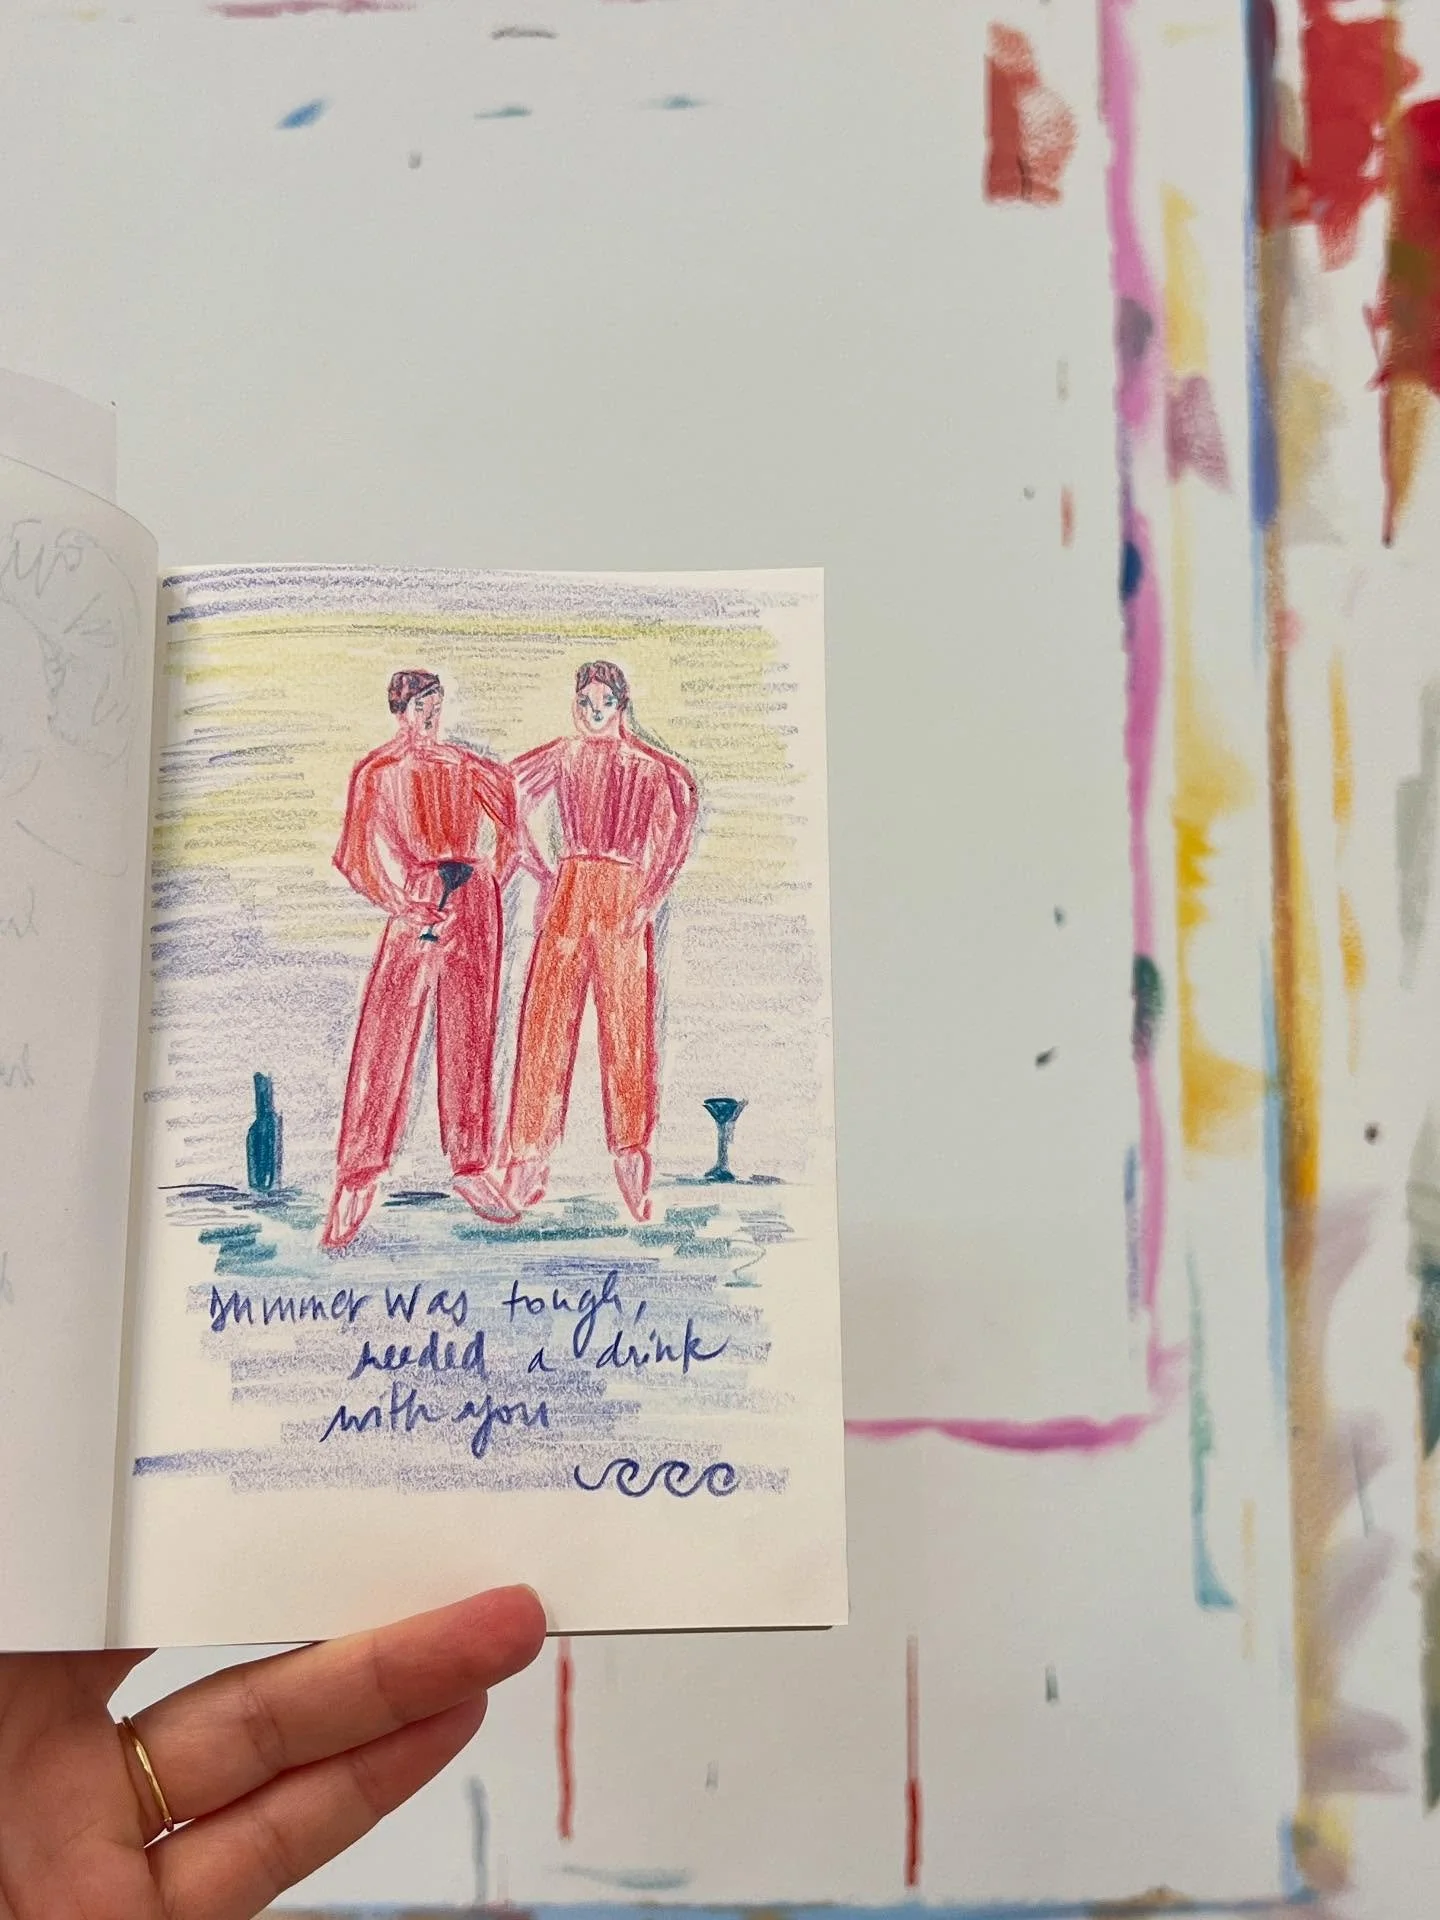 summer was tough,
needed a drink
with you